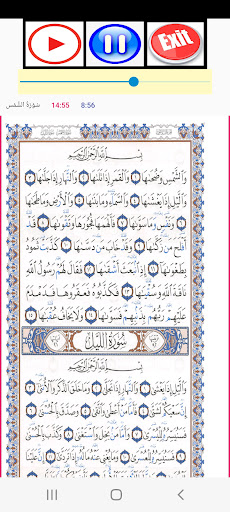 Exit
سُورَةُ الشَّمْسِ 14:55 8:56
بِسْمِ اللَّهِ الرَّحْمَٰنِ الرَّحِيمِ
وَالشَّمْسِ وَضُحَىٰهَا ١ وَالْقَمَرِ إِذَا تَلَىٰهَا ٢ وَالنَّهَارِ إِذَا جَلَّىٰهَا ٣
وَاللَّيْلِ إِذَا يَغْشَىٰهَا ٤ وَالسَّمَاءِ وَمَا بَنَىٰهَا ٥ وَالْأَرْضِ وَمَا طَحَىٰهَا
٦ وَنَفْسٍ وَمَا سَوَّىٰهَا ٧ فَأَلْهَمَهَا فُجُورَهَا وَتَقْوَىٰهَا ٨ قَدْ
أَفْلَحَ مَن زَكَّىٰهَا ٩ وَقَدْ خَابَ مَن دَسَّىٰهَا ١٠ كَذَّبَتْ ثَمُودُ
بِطَغْوَىٰهَا ١١ إِذِ انبَعَثَ أَشْقَىٰهَا ١٢ فَقَالَ لَهُمْ رَسُولُ اللَّهِ
نَاقَةَ اللَّهِ وَسُقْيَٰهَا ١٣ فَكَذَّبُوهُ فَعَقَرُوهَا فَدَمْدَمَ
عَلَيْهِمْ رَبُّهُم بِذَنبِهِمْ فَسَوَّىٰهَا ١٤ وَلَا يَخَافُ عُقْبَٰهَا ١٥
سُورَةُ اللَّيْلِ
بِسْمِ اللَّهِ الرَّحْمَٰنِ الرَّحِيمِ
وَاللَّيْلِ إِذَا يَغْشَىٰ ١ وَالنَّهَارِ إِذَا تَجَلَّىٰ ٢ وَمَا خَلَقَ الذَّكَرَ وَالْأُنثَىٰ ٣
إِنَّ سَعْيَكُمْ لَشَتَّىٰ ٤ فَأَمَّا مَنْ أَعْطَىٰ وَاتَّقَىٰ ٥ وَصَدَّقَ بِالْحُسْنَىٰ ٦
فَسَنُيَسِّرُهُ لِلْيُسْرَىٰ ٧ وَأَمَّا مَن بَخِلَ وَاسْتَغْنَىٰ ٨ وَكَذَّبَ بِالْحُسْنَىٰ
٩ فَسَنُيَسِّرُهُ لِلْعُسْرَىٰ ١٠ وَمَا يُغْنِي عَنْهُ مَالُهُ إِذَا تَرَدَّىٰ ١١